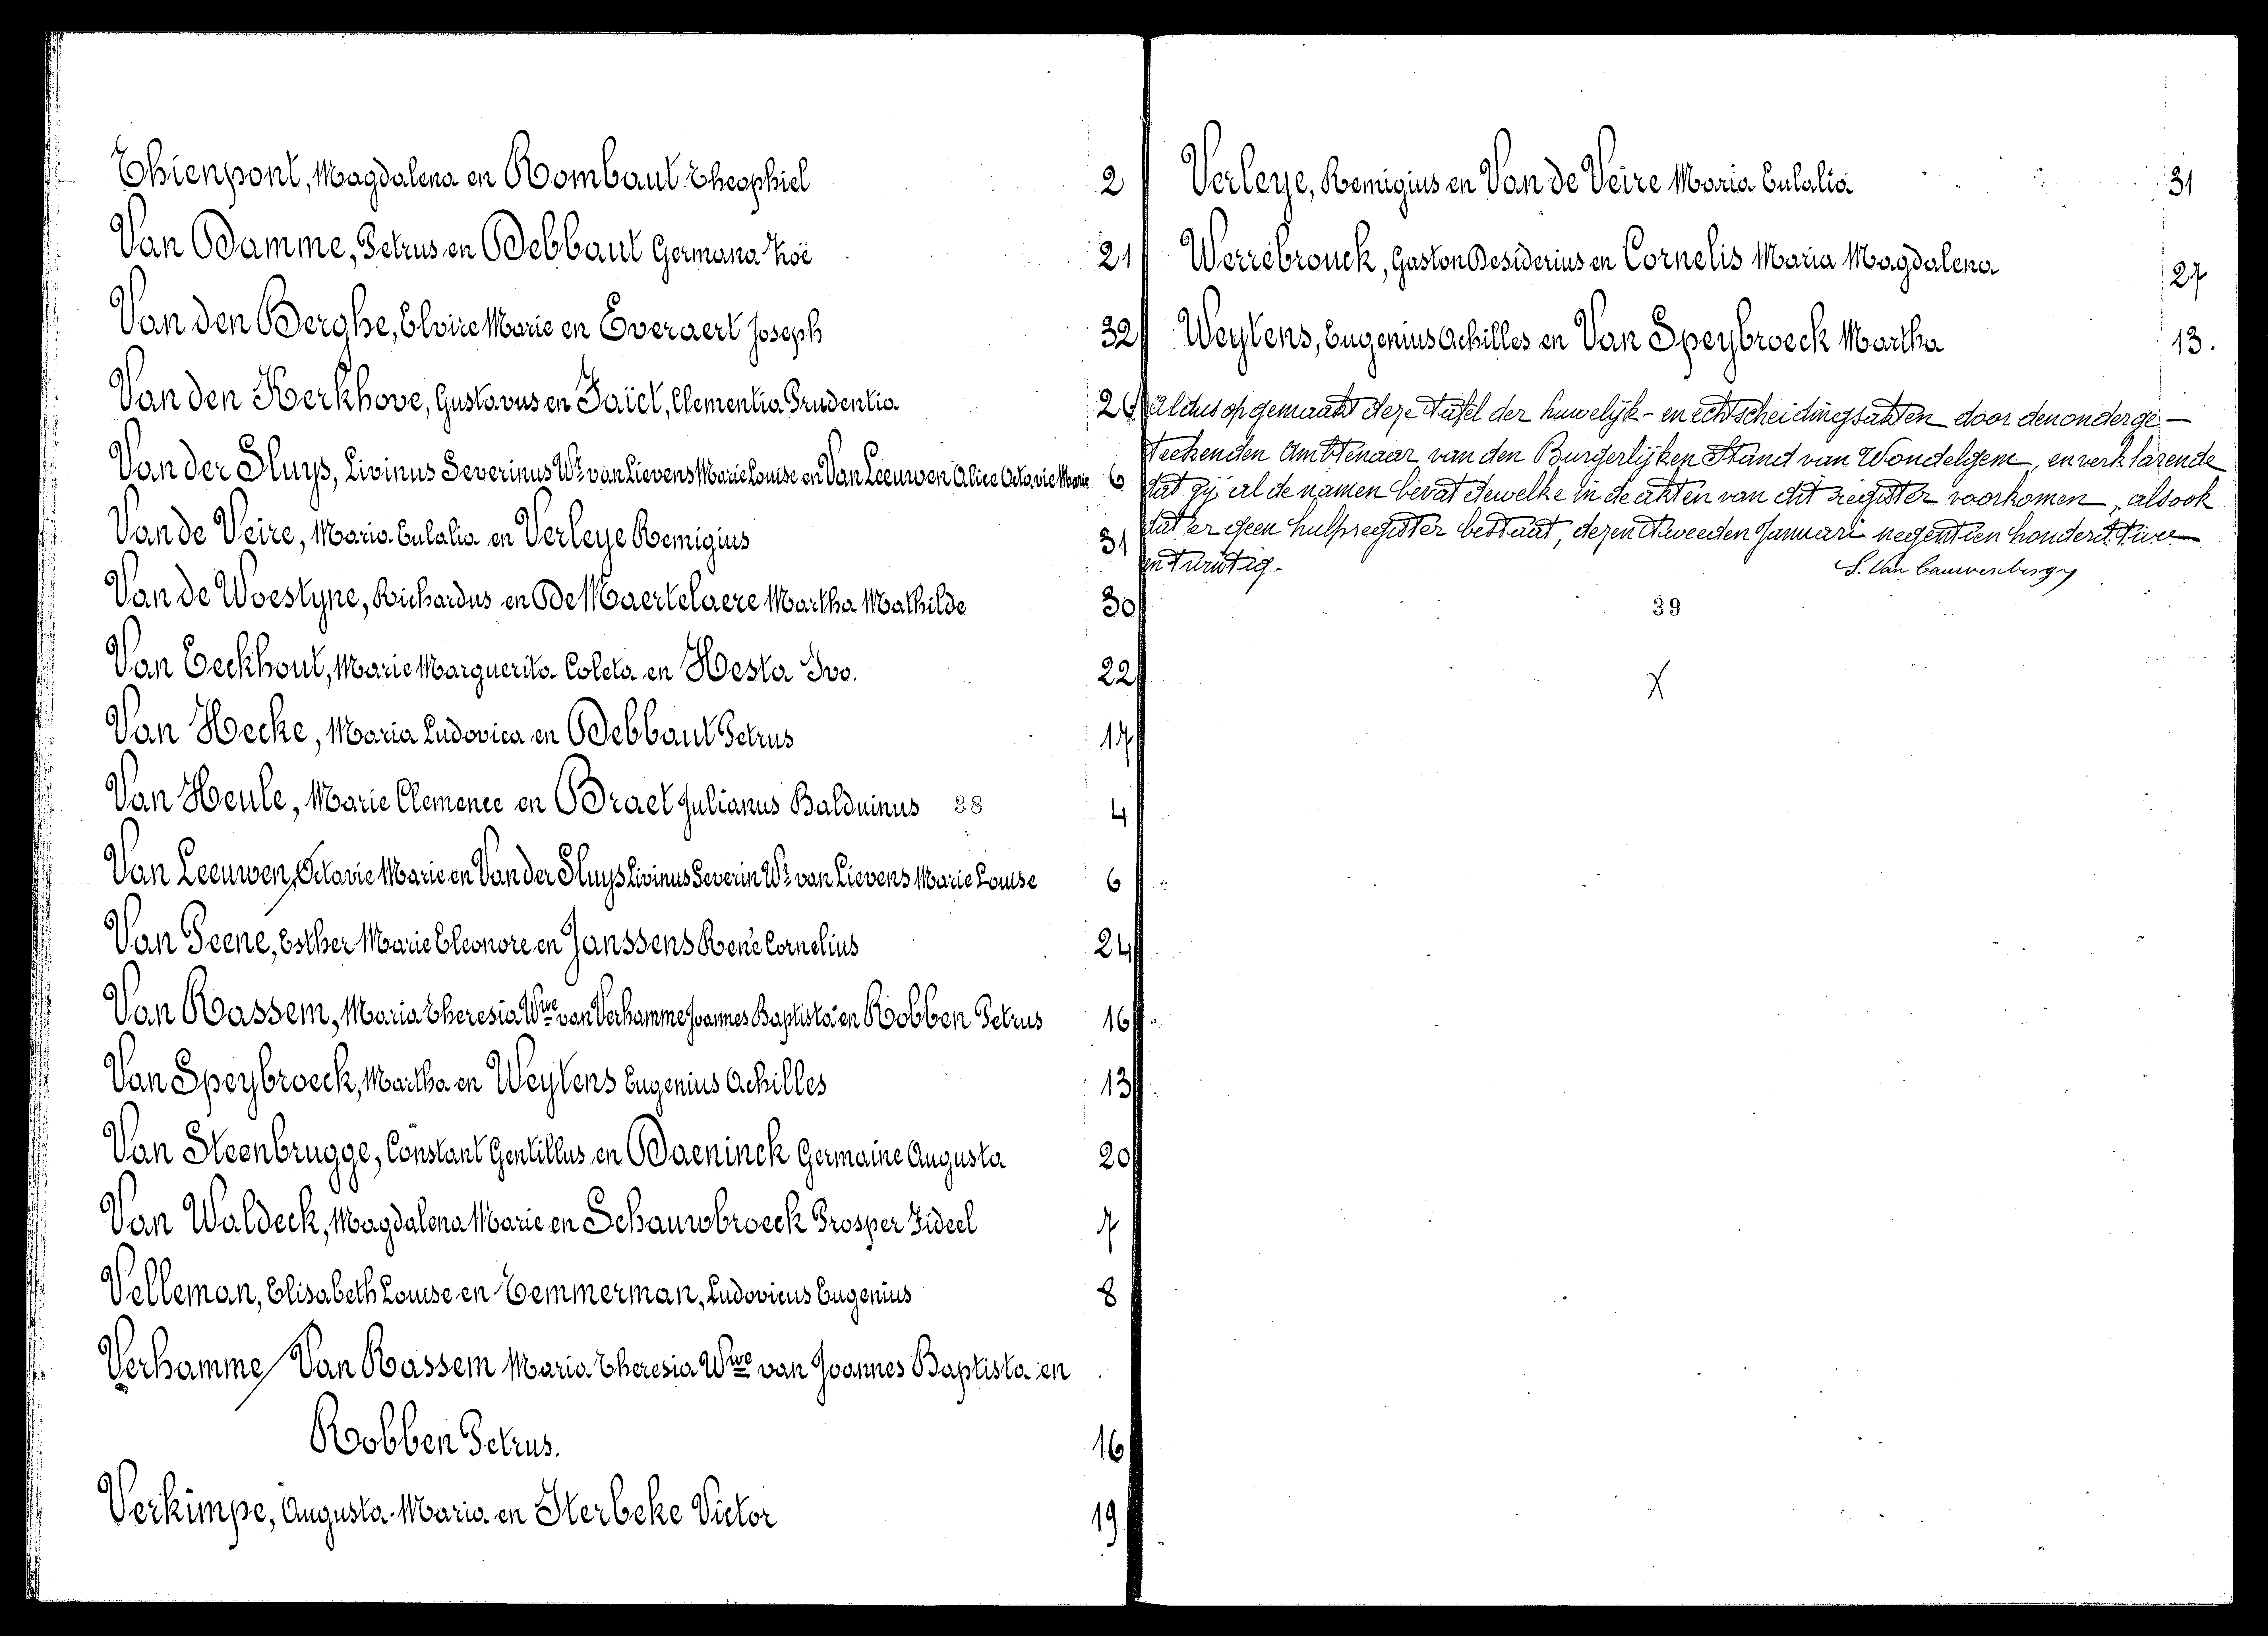 Thienpont, Magdalena en Rombaut Theophiel 2
Van Damme, Petrus en Debbaut Germana Zoë 21
Van den Berghe, Elvire Marie en Everaert Joseph 32
Van den Kerkhove, Gustavus en Taïet, Clementia Prudentia 26
Van der Sluys, Livinus Severinus Wr van Lievens Marie Louise en Van Leeuwen Alice Octavie Marie 6
Van de Veire, Maria Eulalia en Verleye Remigius 31
Van de Woestyne, Richardus en De Maertelaere Martha Mathilde 30
Van Eeckhout, Marie Marguerita Coleta en Hesta Ivo. 22
Van Hecke, Maria Ludovica en Debbaut Petrus 17
Van Heule, Marie Clemence en Braet Julianus Balduinus 38 4
Van Leeuwen, Octavie Marie en Van der Sluys Livinus Severin Wr van Lievens Marie Louise 6
Van Peene, Esther Marie Eleonore en Janssens René Cornelius 24
Van Rassem, Maria Theresia Wwe van Verhamme Joannes Baptista en Robben Petrus 16
Van Speybroeck, Martha en Weytens Eugenius Achilles 13
Van Steenbrugge, Constant Gentillus en Daeninck Germaine Augusta 20
Van Waldeck, Magdalena Marie en Schauwbroeck Prosper Fideel 7
Velleman, Elisabeth Louise en Temmerman, Ludovicus Eugenius 8
Verhamme / Van Rassem Maria Theresia Wwe van Joannes Baptista en
Robben Petrus. 16
Verkimpe, Augusta-Maria en Sterbeke Victor 19
Verleye, Remigius en Van de Veire Maria Eulalia 31
Werrebrouck, Gaston Desiderius en Cornelis Maria Magdalena 27
Weytens, Eugenius Achilles en Van Speybroeck Martha 13.
Aldus opgemaakt deze tafel der huwelijk- en echtscheidingsakten door den onderge-
teekenden Ambtenaar van den Burgerlijken Stand van Wondelgem, en verklarende
dat zij al de namen bevat dewelke in de akten van dit register voorkomen, alsook
dat er geen hulpregister bestaat, dezen tweeden Januari negentien honderd twee
en twintig.
S. Van Cauwenberghe
39
X